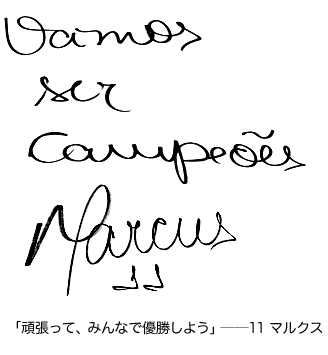 Vamos
ser
Campeões
Marcus
11
「頑張って、みんなで優勝しよう」──11 マルクス